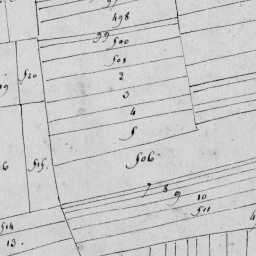 498
99
500
501
2
3
4
5
520
19
506
6
515.
7 8 9 10
511
514
13.
4